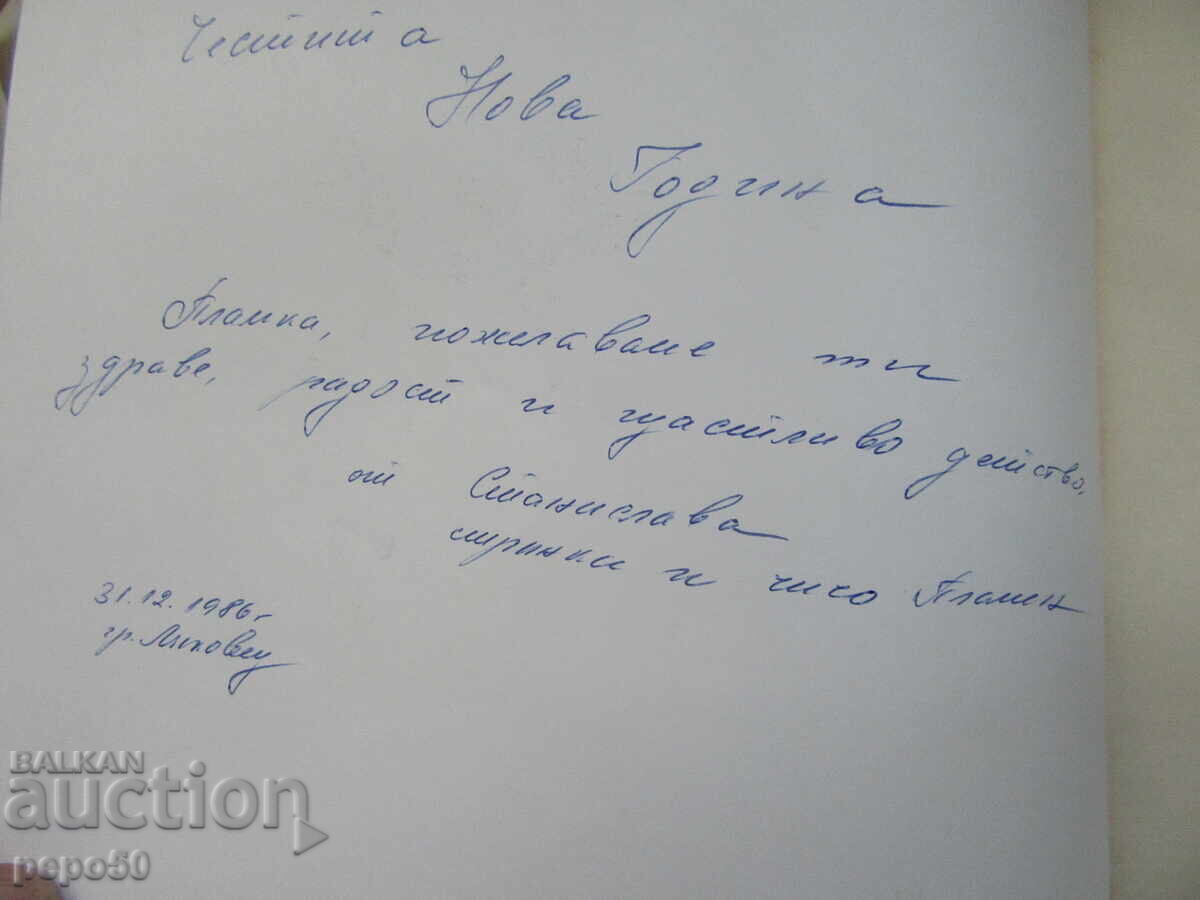 Честита
Нова
Година
Пламка, пожелаваме ти
здраве, радост и щастливо детство.
от Станислава
и чичо Пламен
31.12.1986г.
гр. Ляковец
BALKAN
auction
pepo50